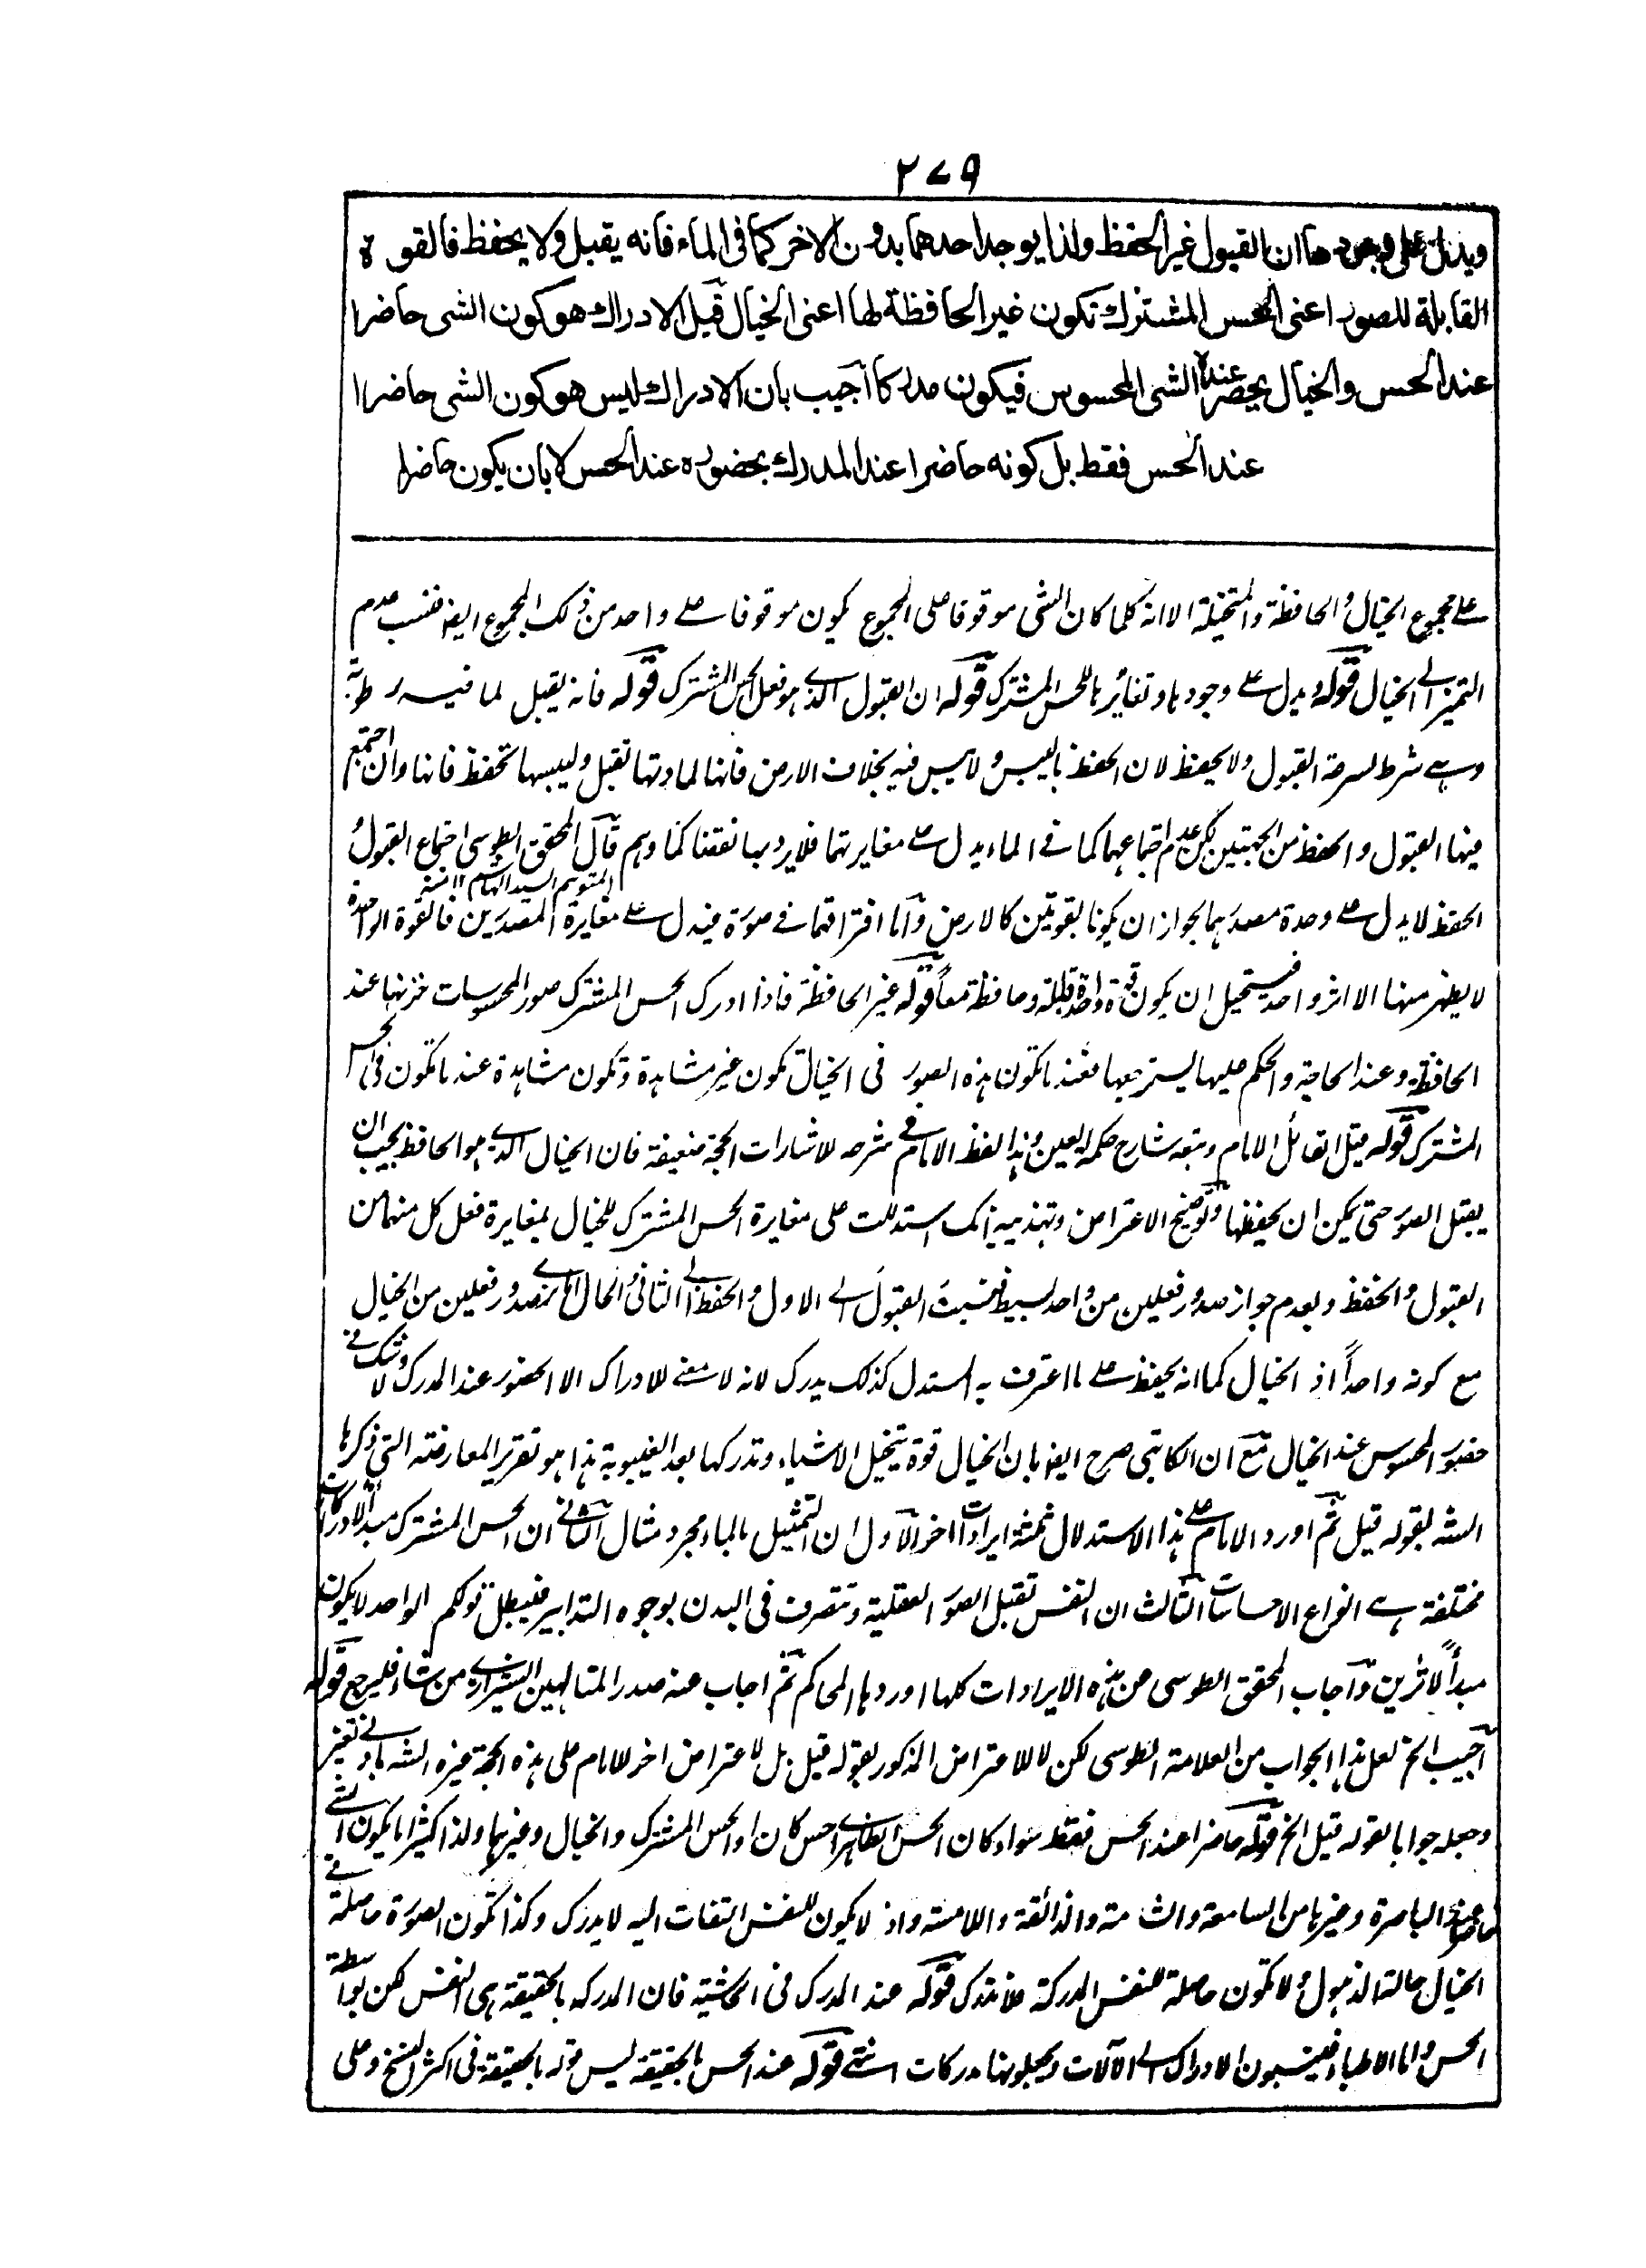 ٢٧٩
ويدل على وجودها ان القبول غير الحفظ ولذا يوجد احدهما بدون الاخر كما فى الماء فانه يقبل ولا يحفظ فالقوة
القابلة للصور اعنى الحس المشترك تكون غير الحافظة لها اعنى الخيال قيل الادراك هو كون الشى حاضرا
عند الحس والخيال يحضر عنده الشى المحسوس فيكون مدركا اجيب بان الادراك ليس هو كون الشى حاضرا
عند الحس فقط بل كونه حاضرا عند المدرك بحضوره عند الحس لا بان يكون حاضرا
على مجموع الخيال والحافظة والمتخيلة الا انه كلما كان الشى موقوفا على المجموع يكون موقوفا على واحد من ذلك المجموع ايضا فنسب عدم
التميز الى الخيال قوله ويدل على وجودها وتغائرها للحس المشترك قوله ان القبول الذى هو فعل الحس المشترك قوله فانه يقبل لما فيه رطوبة
وهى شرط لسرعة القبول ولا يحفظ لان الحفظ باليبس ولا يبس فيه بخلاف الارض فانها لمادتها تقبل وليبسها تحفظ فانها وان اجتمع
فيها القبول والحفظ من الجهتين لكن عدم اجتماعهما كما فى الماء يدل على مغايرتهما فلا يرد بها نقضا كما وهم قال المحقق الطوسى اجتماع القبول و
المتوهم السيد الهاشم ١٢ منه
الحفظ لا يدل على وحدة مصدرهما لجواز ان يكونا بقوتين كالارض واما افتراقهما فى صورة فيدل على مغايرة المصدرين فالقوة الواحدة
لا يظهر منها الا اثر واحد فيستحيل ان يكون قوة واحدة قابلة وحافظة معا قوله غير الحافظة فاذا ادرك الحس المشترك صور المحسوسات خزنها عند
الحافظة وعند الحاجة والحكم عليها يسترجعها فعند ما تكون هذه الصور فى الخيال تكون غير مشاهدة وتكون مشاهدة عند ما تكون فى الحس
المشترك قوله قيل القائل الامام وتبعه شارح حكمة العين وهذا لفظ الامام فى شرحه للاشارات الحجة ضعيفة فان الخيال الذى هو الحافظ يجب ان
يقبل الصور حتى يمكن ان يحفظها وتوضيح الاعتراض وتهذيبه انك استدللت على مغايرة الحس المشترك للخيال بمغايرة فعل كل منهما من
القبول والحفظ وبعدم جواز صدور فعلين من واحد بسيط فنسبت القبول الى الاول والحفظ الى الثانى والحال انه لزم صدور فعلين من الخيال
مع كونه واحدا اذ الخيال كما انه يحفظ على ما اعترف به المستدل كذلك يدرك لانه لا معنى للادراك الا الحضور عند المدرك ولا شك فى
حضور المحسوس عند الخيال مع ان الكاتبى صرح ايضا بان الخيال قوة تتخيل الاشياء وتدركها بعد الغيبوبة هذا هو تقرير المعارضة التى ذكرها
الشه بقوله قيل ثم اورد الامام على هذا الاستدلال ثلثة ايرادات اخر الاول ان التمثيل بالماء مجرد مثال الثانى ان الحس المشترك مبدأ لادراكات
مختلفة هى انواع الاحساسات الثالث ان النفس تقبل الصور العقلية وتتصرف فى البدن بوجوه التدابير فيبطل قولكم الواحد لا يكون
مبدأ لاثرين واجاب المحقق الطوسى عن هذه الايرادات كلها اوردها المحاكم ثم اجاب عنه صدر المتالهين الشيرازى من شاء فليرجع قوله
اجيب الخ لعل هذا الجواب من العلامة الطوسى لكن لا للاعتراض المذكور بقوله قيل بل لاعتراض اخر للامام على هذه الحجة غيره الشه بادنى تغير
وجعله جوابا لقوله قيل الخ قوله حاضرا عند الحس فقط سواء كان الحس الظاهرا حس كان او الحس المشترك والخيال وغيرهما ولذا كثيرا ما يكون الشى
حاضرا عند الباصرة وغيرها من السامعة والشامة والذائقة واللامسة واذ لا يكون للنفس التفات اليه لا يدرك وكذا تكون الصورة حاصلة فى
الخيال حالة الذهول ولا تكون حاصلة للنفس المدركة فلا تدرك قوله عند المدرك فى الحاشية فان المدركه بالحقيقة هى النفس لكن بواسطة
الحس واما الاطباء فينسبون الادراك الى الآلات ويجعلونها مدركات انتهى قوله عند الحس بالحقيقة ليس قوله بالحقيقة فى اكثر النسخ وعلى